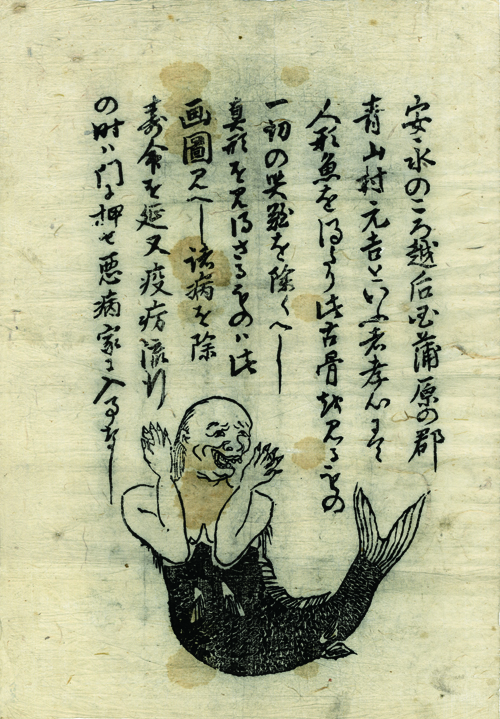 安永のころ越后国蒲原の郡
青山村元吉といふ者孝心にて
人形魚を得たり此古骨を見るものの
一切の災難を除くへし
真形を見得さるものハ此
画圖見へし諸病を除
寿命を延又疫病流行
の時ハ門に押せ悪病家に入る事なし